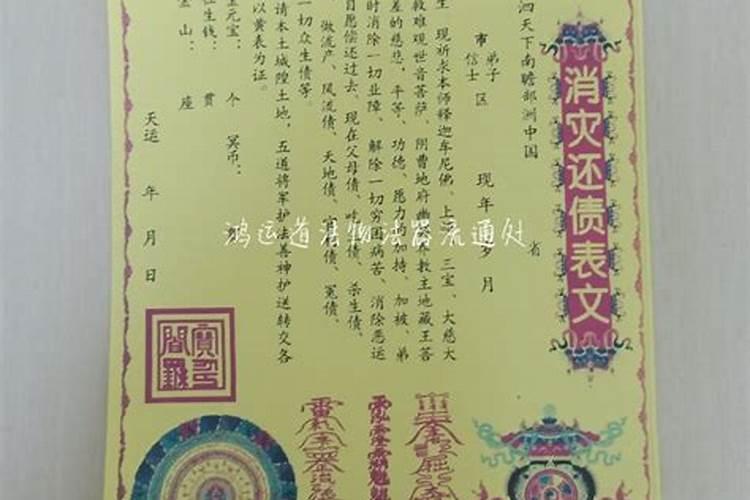 消灾还债表文
泗天下南瞻部洲中国 省
市 弟子 信士 区 现年 岁 月
生 现祈求本师释迦车尼佛、上 三宝、大慈大
救难观世音菩萨、阴曹地府幽 教主地藏王菩
差的慈悲,平等、功德、愿力的加持、加被、弟
时消除一切业障、解除一切穷困病苦、消除恶运
自愿偿还过去、现在父母债、吃 债、杀生债、
做流产、风流债、天地债、 债、冤债、
一切众生债等。
请本土城隍土地,五道将军护法善神护送转交各
以黄表为证。
元宝: 个 冥币:
生钱: 贯
山: 座
天运 年 月 日
鸿运道法物法器流通处